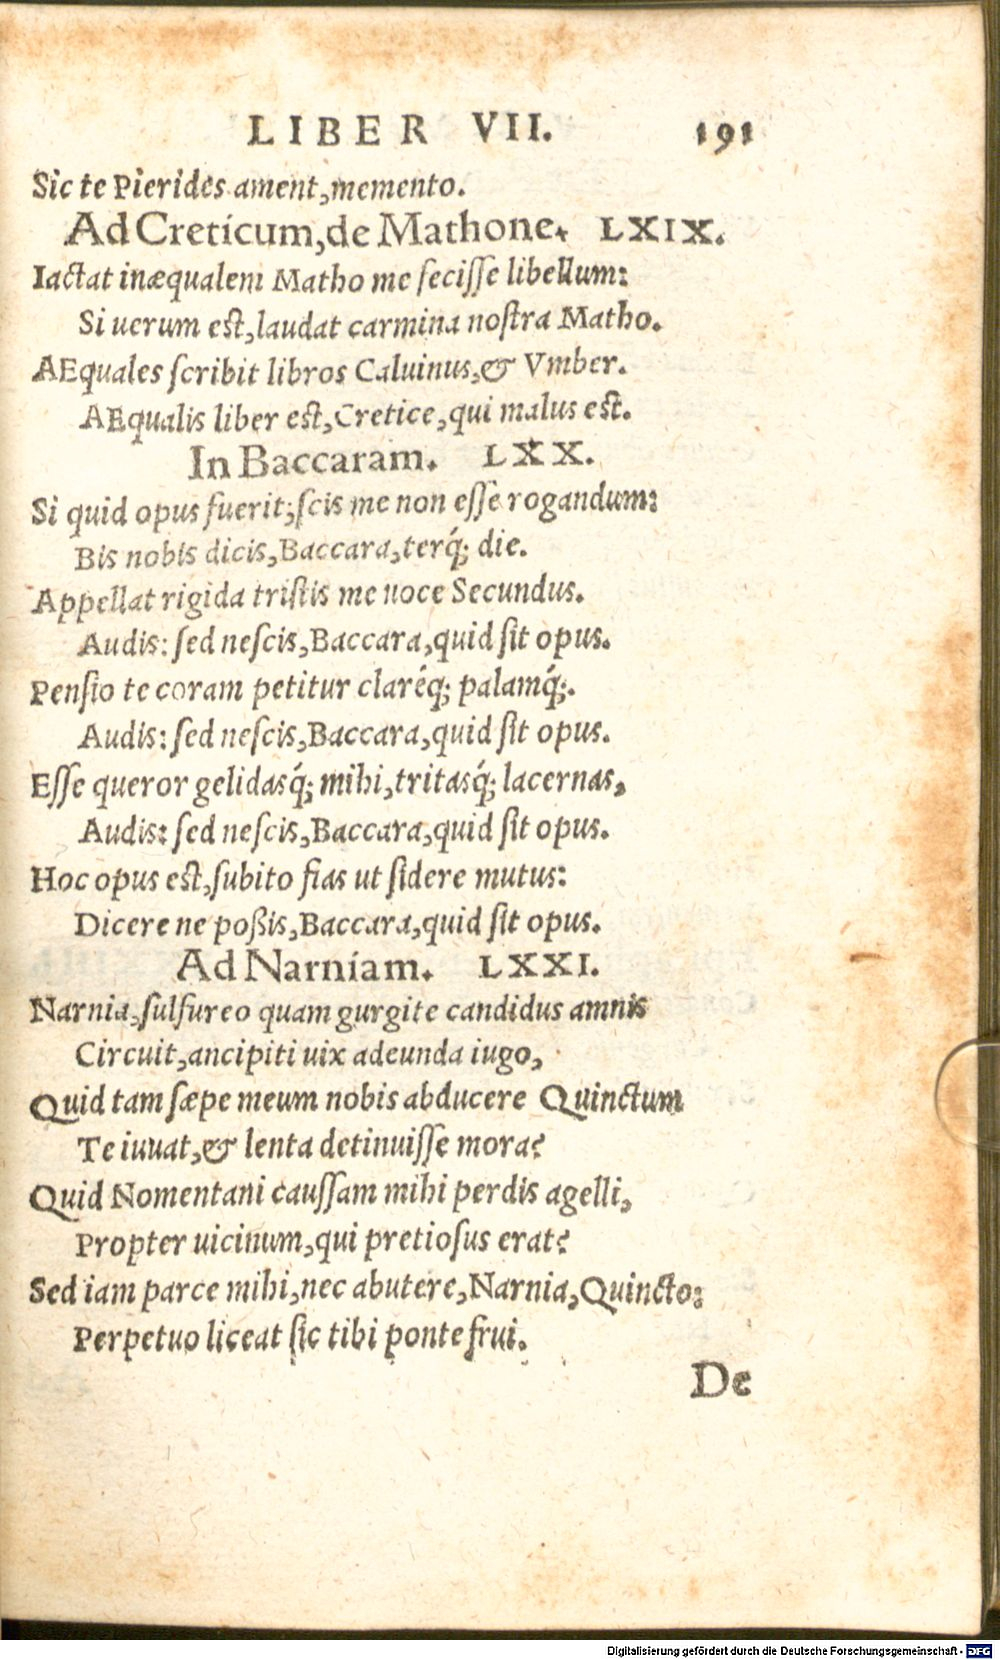 LIBER VII. 191
Sic te Pierides ament, memento.
Ad Creticum, de Mathone. LXIX.
Iactat inæqualem Matho me fecisse libellum:
Si uerum est, laudat carmina nostra Matho.
AEquales scribit libros Caluinus, & Vmber.
AEqualis liber est, Cretice, qui malus est.
In Baccaram. LXX.
Si quid opus fuerit, scis me non esse rogandum:
Bis nobis dicis, Baccara, terq́; die.
Appellat rigida tristis me uoce Secundus.
Audis: sed nescis, Baccara, quid sit opus.
Pensio te coram petitur claréq; palamq́;.
Audis: sed nescis, Baccara, quid sit opus.
Esse queror gelidasq́; mihi, tritasq́; lacernas,
Audis: sed nescis, Baccara, quid sit opus.
Hoc opus est, subito fias ut sidere mutus:
Dicere ne poßis, Baccara, quid sit opus.
Ad Narniam. LXXI.
Narnia, sulfureo quam gurgite candidus amnis
Circuit, ancipiti uix adeunda iugo,
Quid tam sæpe meum nobis abducere Quinctum
Te iuuat, & lenta detinuisse mora?
Quid Nomentani caussam mihi perdis agelli,
Propter uicinum, qui pretiosus erat?
Sed iam parce mihi, nec abutere, Narnia, Quincto:
Perpetuo liceat sic tibi ponte frui.
De
Digitalisierung gefördert durch die Deutsche Forschungsgemeinschaft - DFG